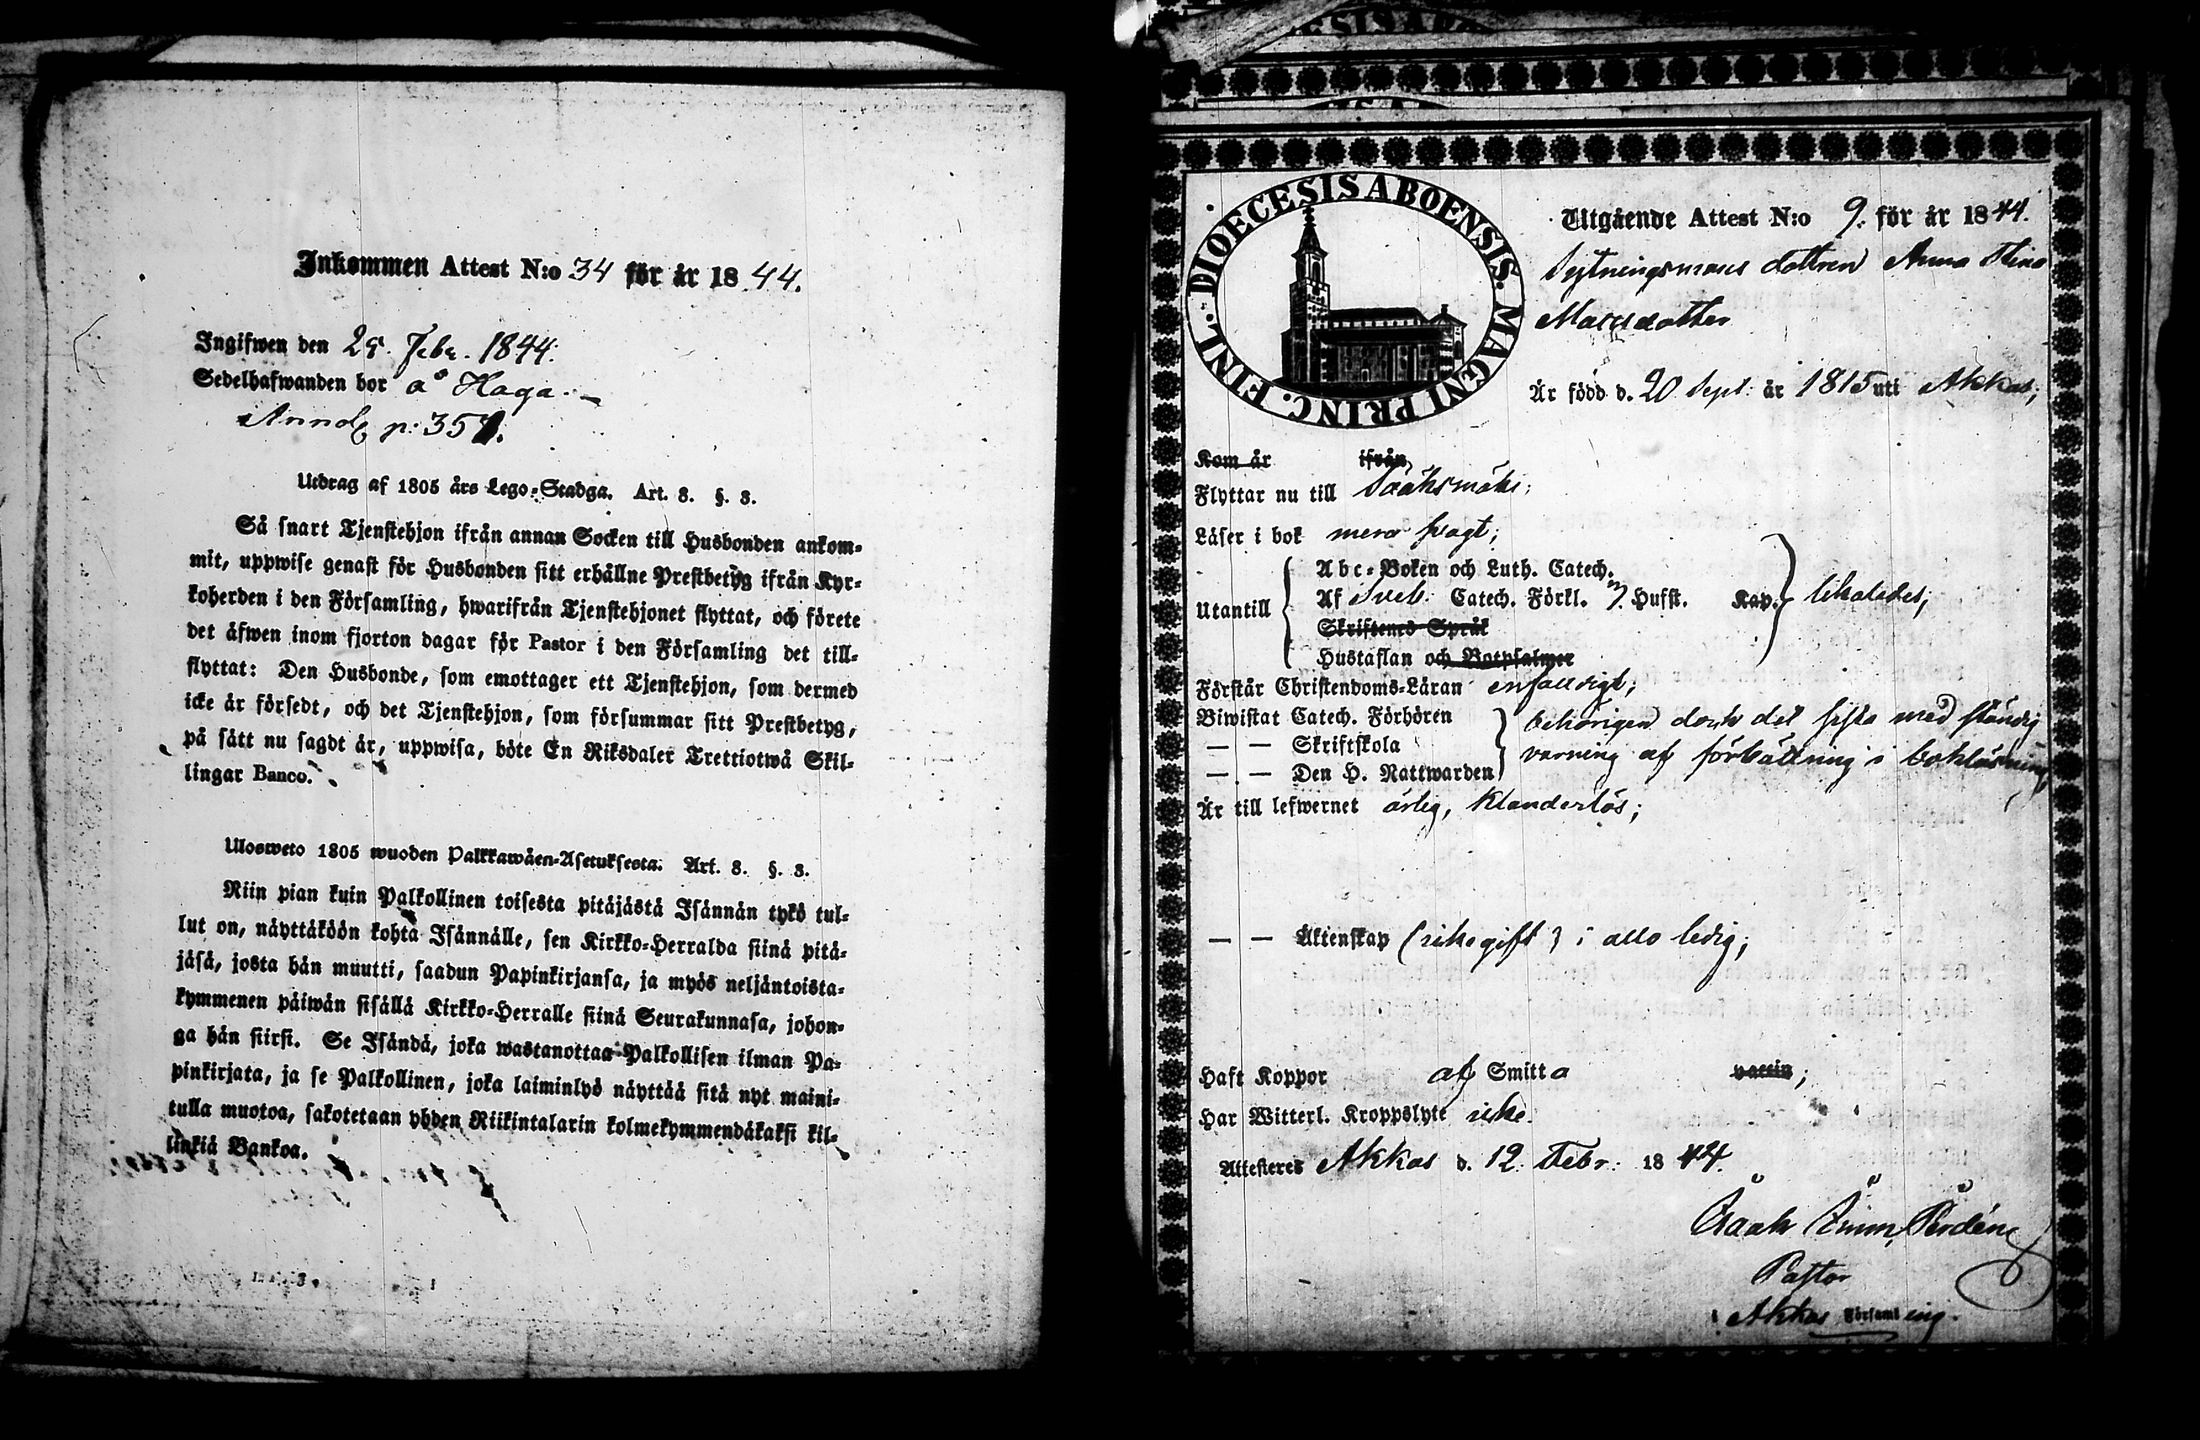 Inkommen Attest N:o 34 för år 18 44.
Ingifwen den 29. Febr. 1844.
Sedelhafwanden bor å Haga.
p: 35
Utdrag af 1805 års Lego-Stadga. Art. 8. §. 3.
Så snart Tjenstehjon ifrån annan Socken till Husbonden ankom-
mit, uppwise genast för Husbonden sitt erhållne Prestbetyg ifrån Kyr-
koherden i den Församling, hwarifrån Tjenstehjonet flyttat, och förete
det äfwen inom fjorton dagar för Pastor i den Församling det till-
flyttat: Den Husbonde, som emottager ett Tjenstehjon, som dermed
icke är försedt, och det Tjenstehjon, som försummar sitt Prestbetyg,
på sätt nu sagdt är, uppwisa, böte En Riksdaler Trettiotwå Skil-
lingar Banco.
Ulosweto 1805 wuoden Palkkawäen-Asetuksesta. Art. 8. §. 3.
Niin pian kuin Palkollinen toisesta pitäjästä Isännän tykö tul-
lut on, näyttäköön kohta Isännälle, sen Kirkko-Herralda siinä pitä-
jäsä, josta hän muutti, saadun Papinkirjansa, ja myös neljäntoista-
kymmenen päiwän sisällä Kirkko-Herralle siinä Seurakunnasa, johon-
ga hän siirsi. Se Isändä, joka wastanottaa Palkollisen ilman Pa-
pinkirjata, ja se Palkollinen, joka laiminlyö näyttää sitä nyt maini-
tulla muotoa, sakotetaan yhden Riikintalarin kolmekymmendäkaksi kil-
linkiä Bankoa.
DIOECESIS ABOENSIS. MAGNI PRINC. FINL.
Utgående Attest N:o 9. för år 1844.
dottren Anna Stina
Matsdotter
Är född d. 20 Sept: år 1815 uti Akkas;
Kom år ifrån
Flyttar nu till Sääksmäki;
Läser i bok
Abc-Boken och Luth. Catech.
Utantill Af Sveb. Catech. Förkl. Hufst. Kap. likaledes;
Skriftenes Språk
Hustaflan och Botpsalmer
Förstår Christendoms-Läran enfaldigt;
Biwistat Catech. Förhören behörigen dock det sista med ständig
— — Skriftskola varning af förbättring i bokläsning
— — Den H. Nattwarden
Är till lefwernet ärlig, klanderlös;
— — Äktenskap (icke gift) i allo ledig;
Haft Koppor af Smitta vaccin;
Har Witterl. Kroppslyte icke.
Attesteres Akkas d. 12. Febr: 18 44.
Pastor
i Akkas Församling.